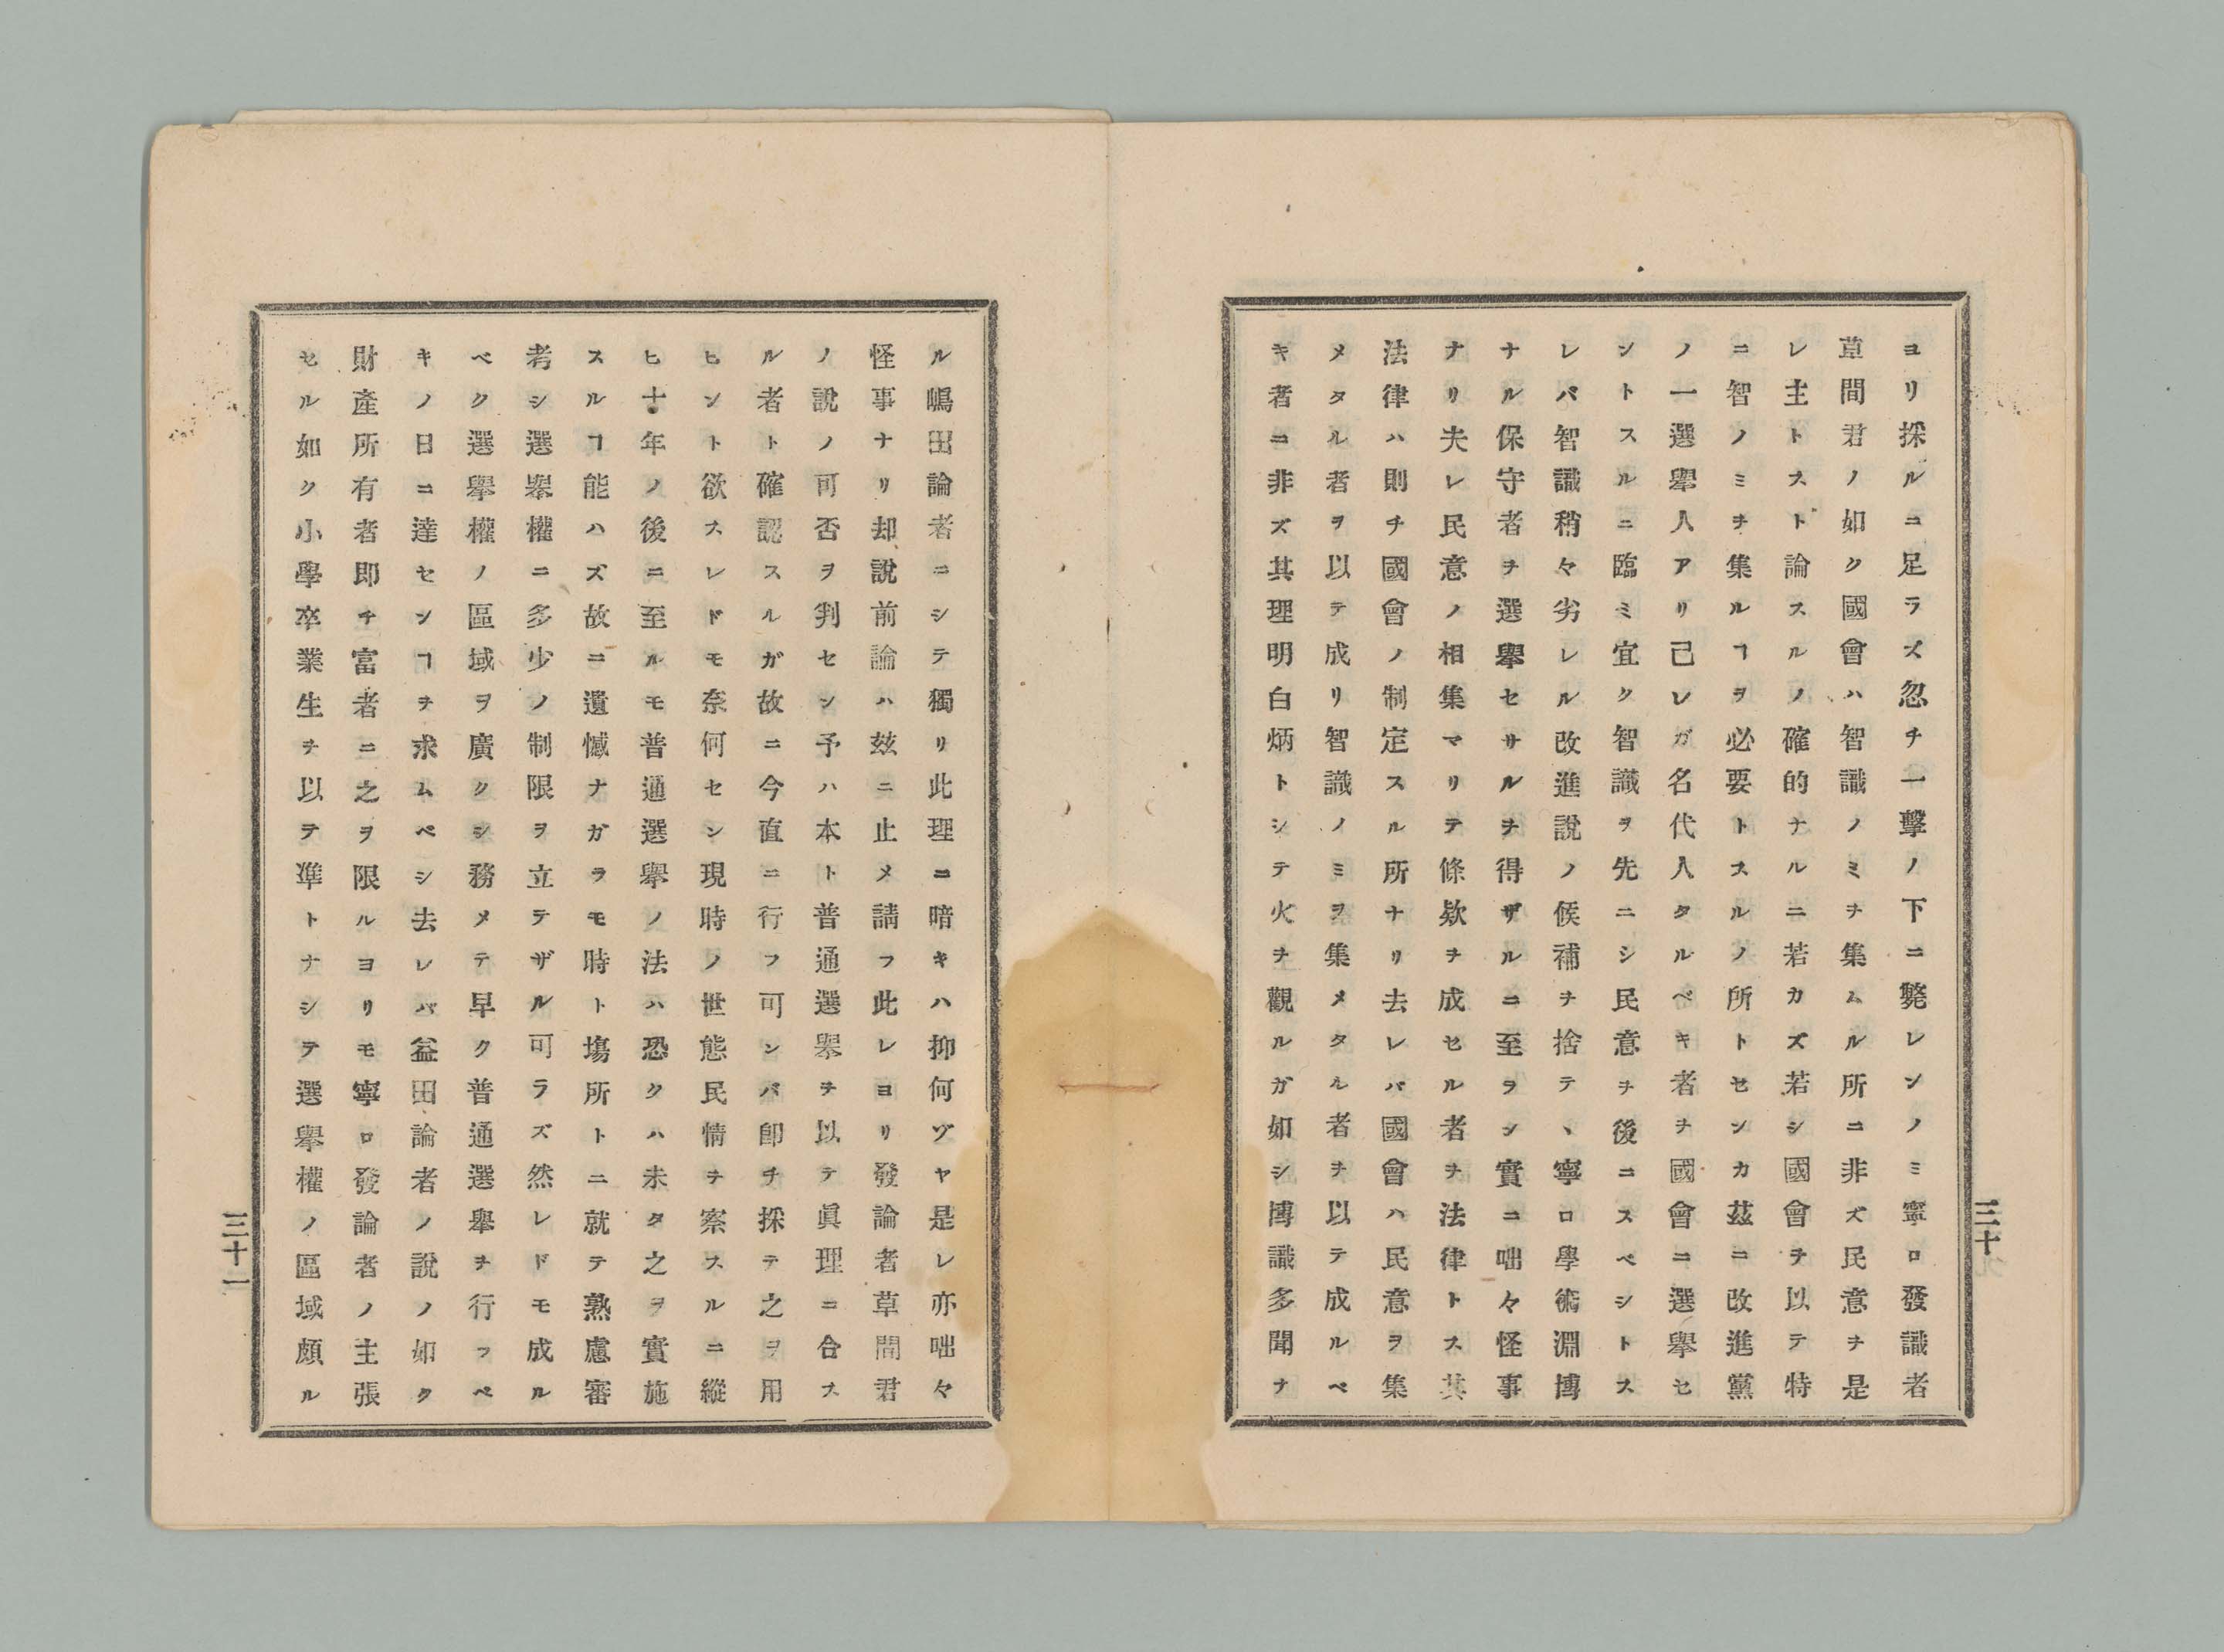 ヨリ採ルニ足ラズ忽チ一撃ノ下ニ斃レンノミ寧ロ發識者
草間君ノ如ク國會ハ智識ノミチ集ムル所ニ非ズ民意チ是
レ主トスト論スルノ確的ナルニ若カズ若シ國會ヲ以テ特
ニ智ノミヲ集ルヿヲ必要トスルノ所トセンカ茲ニ改進黨
ノ一選擧人アリ己レガ名代人タルベキ者チ國會ニ選擧セ
ントスルニ臨ミ宜ク智識ヲ先ニシ民意チ後ニスベシトス
レバ智識稍々劣レル改進説ノ候補チ捨テヽ寧ロ學術淵博
ナル保守者ヲ選擧セサルチ得ザルニ至ラン實ニ咄々怪事
ナリ夫レ民意ノ相集マリテ條欵チ成セル者ヲ法律トス其
法律ハ則チ國會ノ制定スル所ナリ去レバ國會ハ民意ヲ集
メタル者ヲ以テ成リ智識ノミヲ集メタル者チ以テ成ルベ
キ者ニ非ズ其理明白炳トシテ火チ觀ルガ如シ博識多聞ナ
三十
ル嶋田論者ニシテ獨リ此理ニ暗キハ抑何ヅヤ是レ亦咄々
怪事ナリ却説前論ハ玆ニ止メ請フ此レヨリ發論者草間君
ノ説ノ可否ヲ判セン予ハ本ト普通選擧チ以テ眞理ニ合ス
ル者ト確認スルガ故ニ今直ニ行フ可ンバ卽チ採テ之ヲ用
ヒント欲スレドモ奈何セン現時ノ世態民情チ察スルニ縱
ヒ十年ノ後ニ至ルモ普通選擧ノ法ハ恐クハ未タ之ヲ實施
スルヿ能ハズ故ニ遺憾ナガラモ時ト塲所トニ就テ熟慮審
考シ選擧權ニ多少ノ制限ヲ立テザル可ラズ然レドモ成ル
ベク選擧權ノ區域ヲ廣クシ務メテ早ク普通選擧チ行フベ
キノ日ニ達センヿチ求ムベシ去レバ益田論者ノ説ノ如ク
財產所有者即チ富者ニ之ヲ限ルヨリモ寧ロ發論者ノ主張
セル如ク小學卒業生チ以テ準トナシテ選擧權ノ區域頗ル
三十一